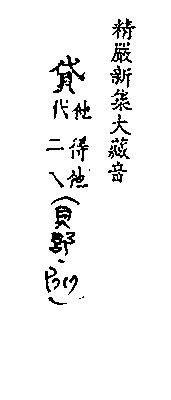 精嚴新集大藏音
貸
他得他
代二
（貝部